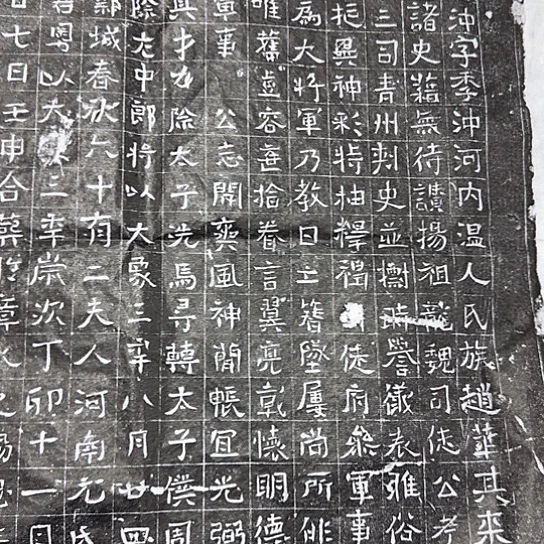 沖字季沖河内温人氏族趙華其来
諸史籍無待讚揚祖龍魏司徒公考
三司青州刺史並樹時譽儀表雅俗
挺異神彩特抽釋褐司徒府參軍事
為大將軍乃教曰主簪墜屨尚所
唯舊豈容遺捨眷言翼亮載懷明德
軍事公志開爽風神簡悵宜光弼
其才力除太子洗馬尋轉太子僕周
除左中郎將以大象三年八月廿四
城春秋六十有二夫人河南元氏
粤以大三年歲次丁卯十一月
七日壬申合葬於漳水之陽